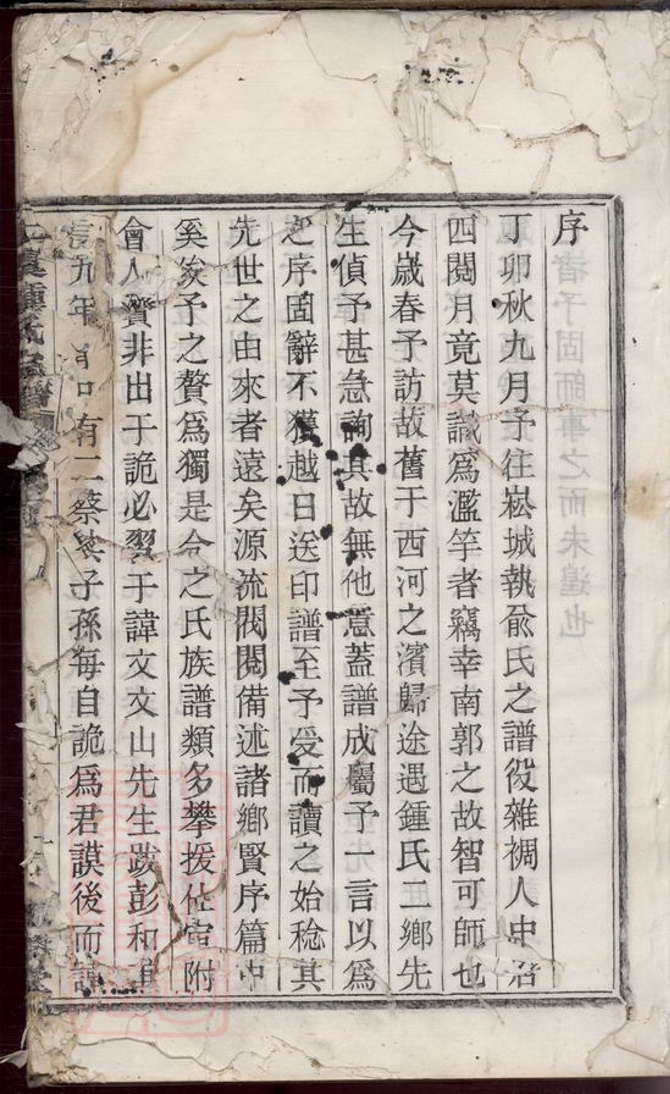 序
丁卯秋九月予往崧城執兪氏之譜役雜裯人中沼
四閱月竟莫識爲濫竽者竊幸南郭之故智可師也
今歲春予訪故舊于西河之濱歸途遇鍾氏二鄉先
生偵予甚急詢其故無他意蓋譜成屬予一言以爲
之序固辭不獲越日送印譜至予受而讀之始稔其
先世之由來者遠矣源流閥閱備述諸鄉賢序篇中
奚俟予之贅爲獨是今之氏族譜類多攀援佐宦附
會人實非出于詭必習于諱文文山先生跋彭和
九年有二蔡其子孫每自詭爲君謨後而諱